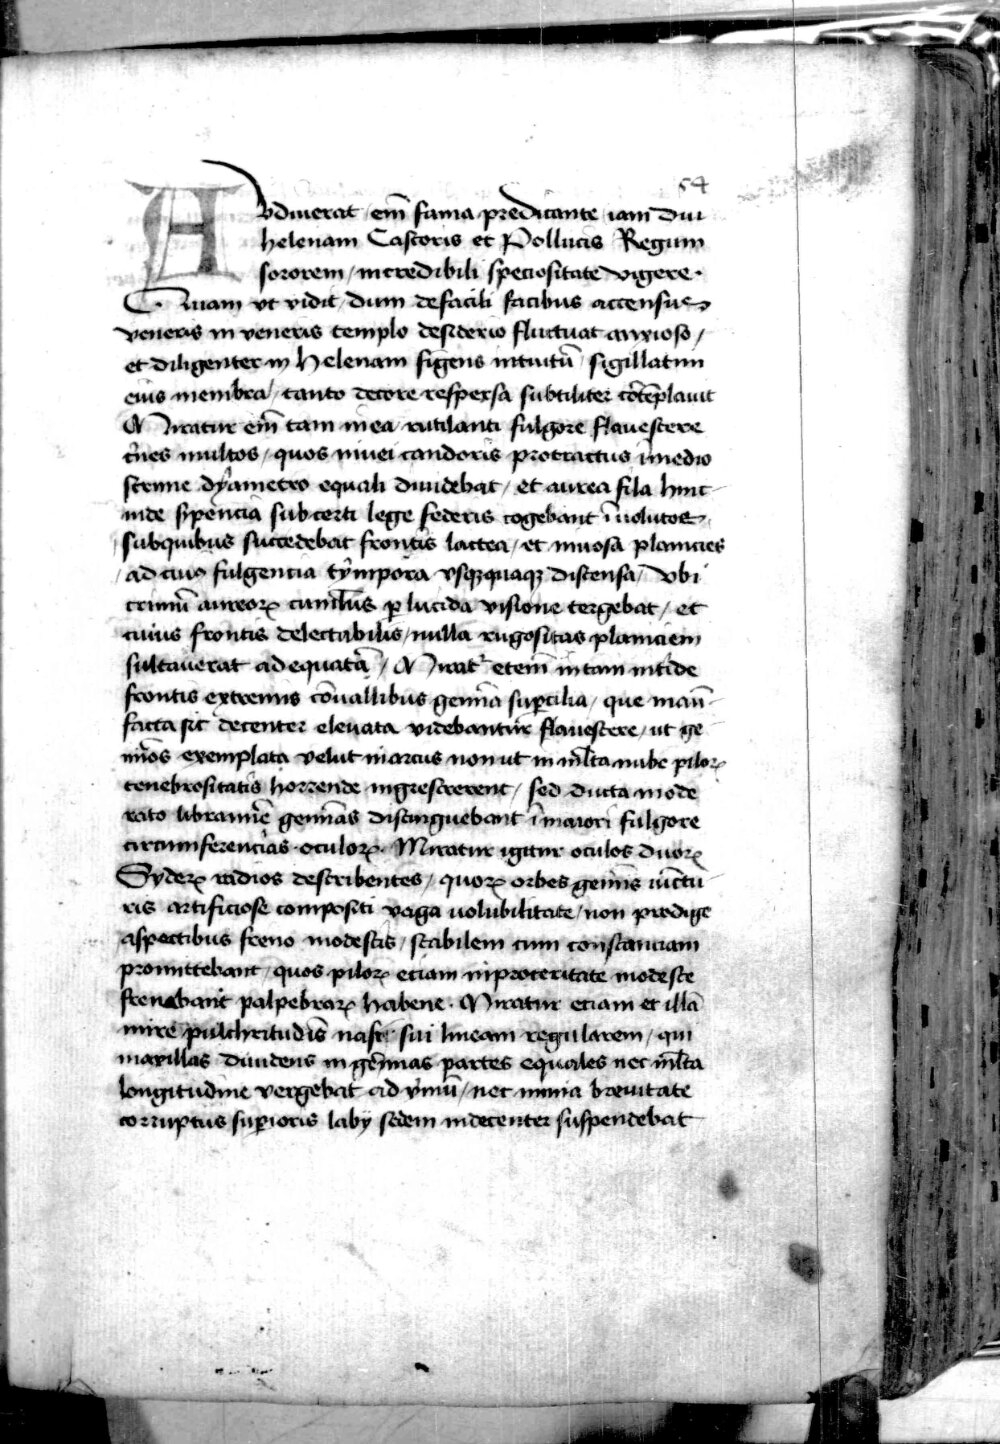 54
Avdiuerat / em̄ fama predicante / iam dui
helenam Castoris et Pollucis Regum
sororem / incredibili speciositate vigere ·
Quam vt vidit / dum de facili facibus accensus
veneris in veneris templo desiderio fluctuat anxioso /
et diligenter in Helenam figens intuitū / sigillatim
eius membra / tanto decore respersa subtiliter cōtēplauit
Miratur em̄ tam in ea rutilanti fulgore flauescere
c̄nes multos / quos niuei candoris protractus ī medio
scrime dyametro equali diuidebat / et aurea fila hinc
inde s̄pencia sub certi lege federis cogebant īuolutos
sub quibus succedebat frontis lactea / et niuosa planicies
ad cuiꝰ fulgencia tympora vsqꝫquaqꝫ distensa / vbi
criniū aureoꝝ cumul̄us ꝑ lucida visione tergebat / et
cuius frontis delectabilis / nulla rugositas planiciem
sulcauerat adequatā / Mirat᷑ etem̄ in tam nitide
frontis extremis cōuallibus gemīa suꝑcilia / que manū
facta sic decenter eleuata videbantur flauescere / ut ge
mīos exemplata velut in arcus non ut in ml̄ta nube piloꝝ
tenebrositatis horrende nigrescerent / sed ducta mode
rato libramīe gemīas distinguebant ī maiori fulgore
circumferencias oculoꝝ · Miratur igitur oculos duoꝝ
Syderꝝ radios describentes / quoꝝ orbes gemīs iūctu
ris artificiose compositi vaga uolubilitate / non prodige
aspectibus freno modestis / stabilem cum constanciam
promittebant / quos piloꝝ eciam in proceritate modeste
frenabant palpebraꝝ habene · Miratur eciam et illā
mire pulchritudīs nasi sui lineam regularem / qui
maxillas diuidens in gemīas partes equales nec ml̄ta
longitudine vergebat ad ymū / nec nimia breuitate
corruptus suꝑioris laby sedem indecenter suspendebat